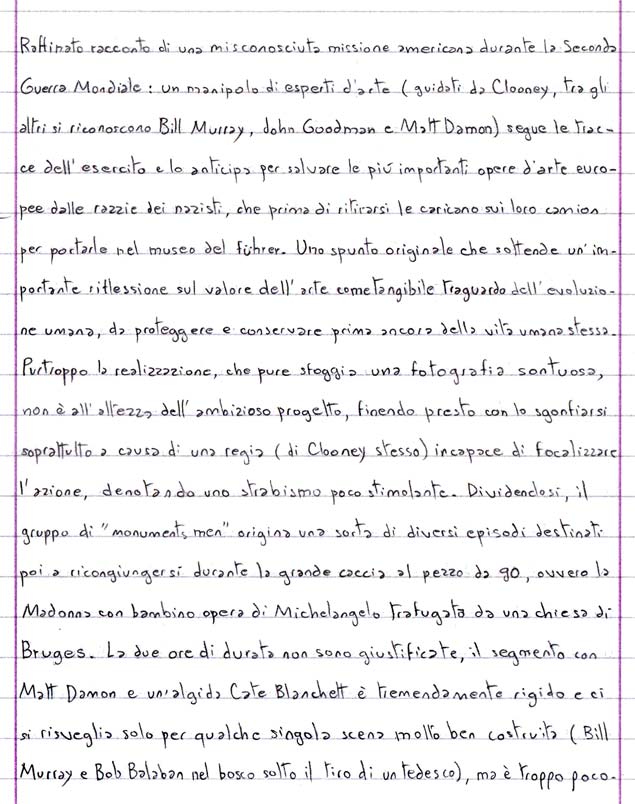 Raffinato racconto di una misconosciuta missione americana durante la Seconda
Guerra Mondiale: un manipolo di esperti d'arte (guidati da Clooney, tra gli
altri si riconoscono Bill Murray, John Goodman e Matt Damon) segue le trac-
ce dell'esercito e lo anticipa per salvare le più importanti opere d'arte euro-
pee dalle razzie dei nazisti, che prima di ritirarsi le caricano sui loro camion
per portarle nel museo del führer. Uno spunto originale che sottende un'im-
portante riflessione sul valore dell'arte come tangibile traguardo dell'evoluzio-
ne umana, da proteggere e conservare prima ancora della vita umana stessa.
Purtroppo la realizzazione, che pure sfoggia una fotografia sontuosa,
non è all'altezza dell'ambizioso progetto, finendo presto con lo sgonfiarsi
soprattutto a causa di una regia (di Clooney stesso) incapace di focalizzare
l'azione, denotando uno strabismo poco stimolante. Dividendosi, il
gruppo di "monuments men" origina una sorta di diversi episodi destinati
poi a ricongiungersi durante la grande caccia al pezzo da 90, ovvero la
Madonna con bambino opera di Michelangelo trafugata da una chiesa di
Bruges. La due ore di durata non sono giustificate, il segmento con
Matt Damon e un'algida Cate Blanchett è tremendamente rigido e ci
si risveglia solo per qualche singola scena molto ben costruita (Bill
Murray e Bob Balaban nel bosco sotto il tiro di un tedesco), ma è troppo poco.